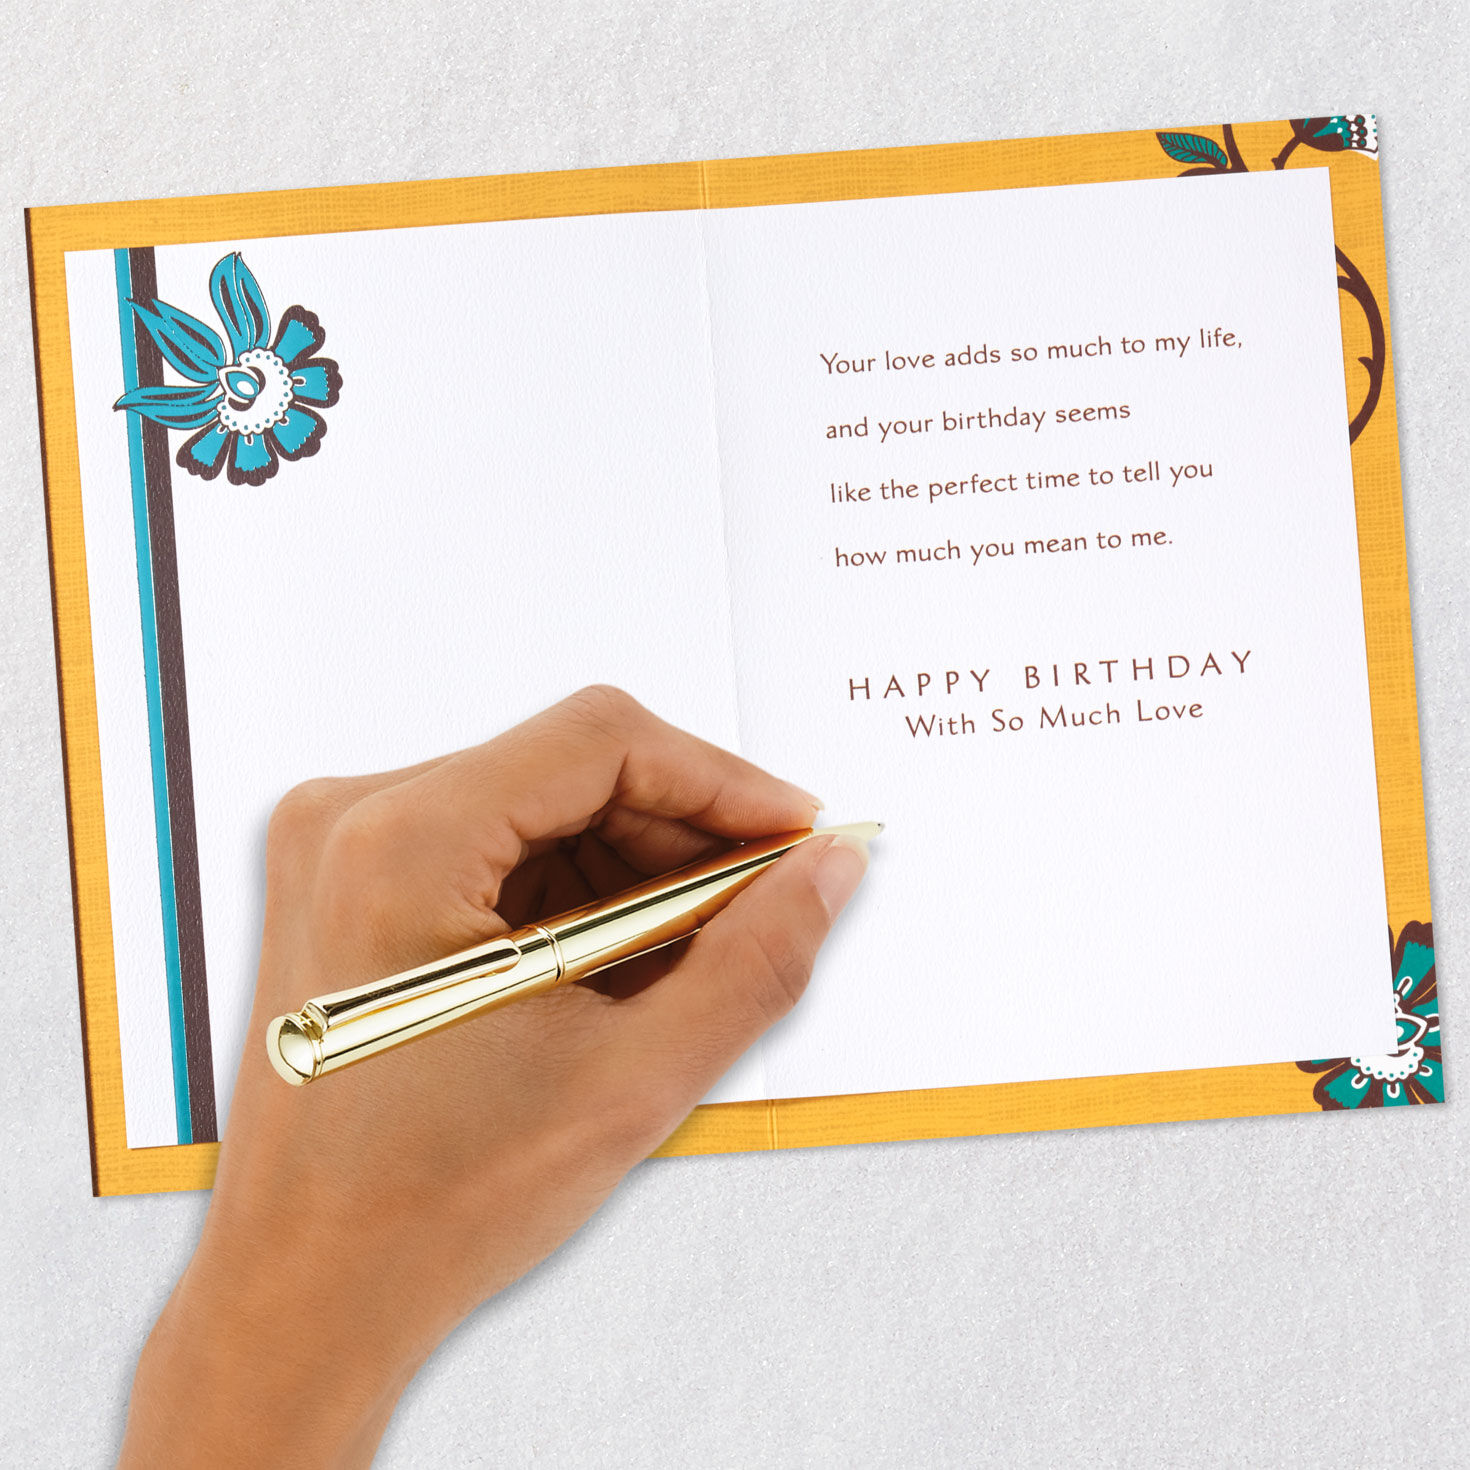 Your love adds so much to my life,
and your birthday seems
like the perfect time to tell you
how much you mean to me.
HAPPY BIRTHDAY
With So Much Love